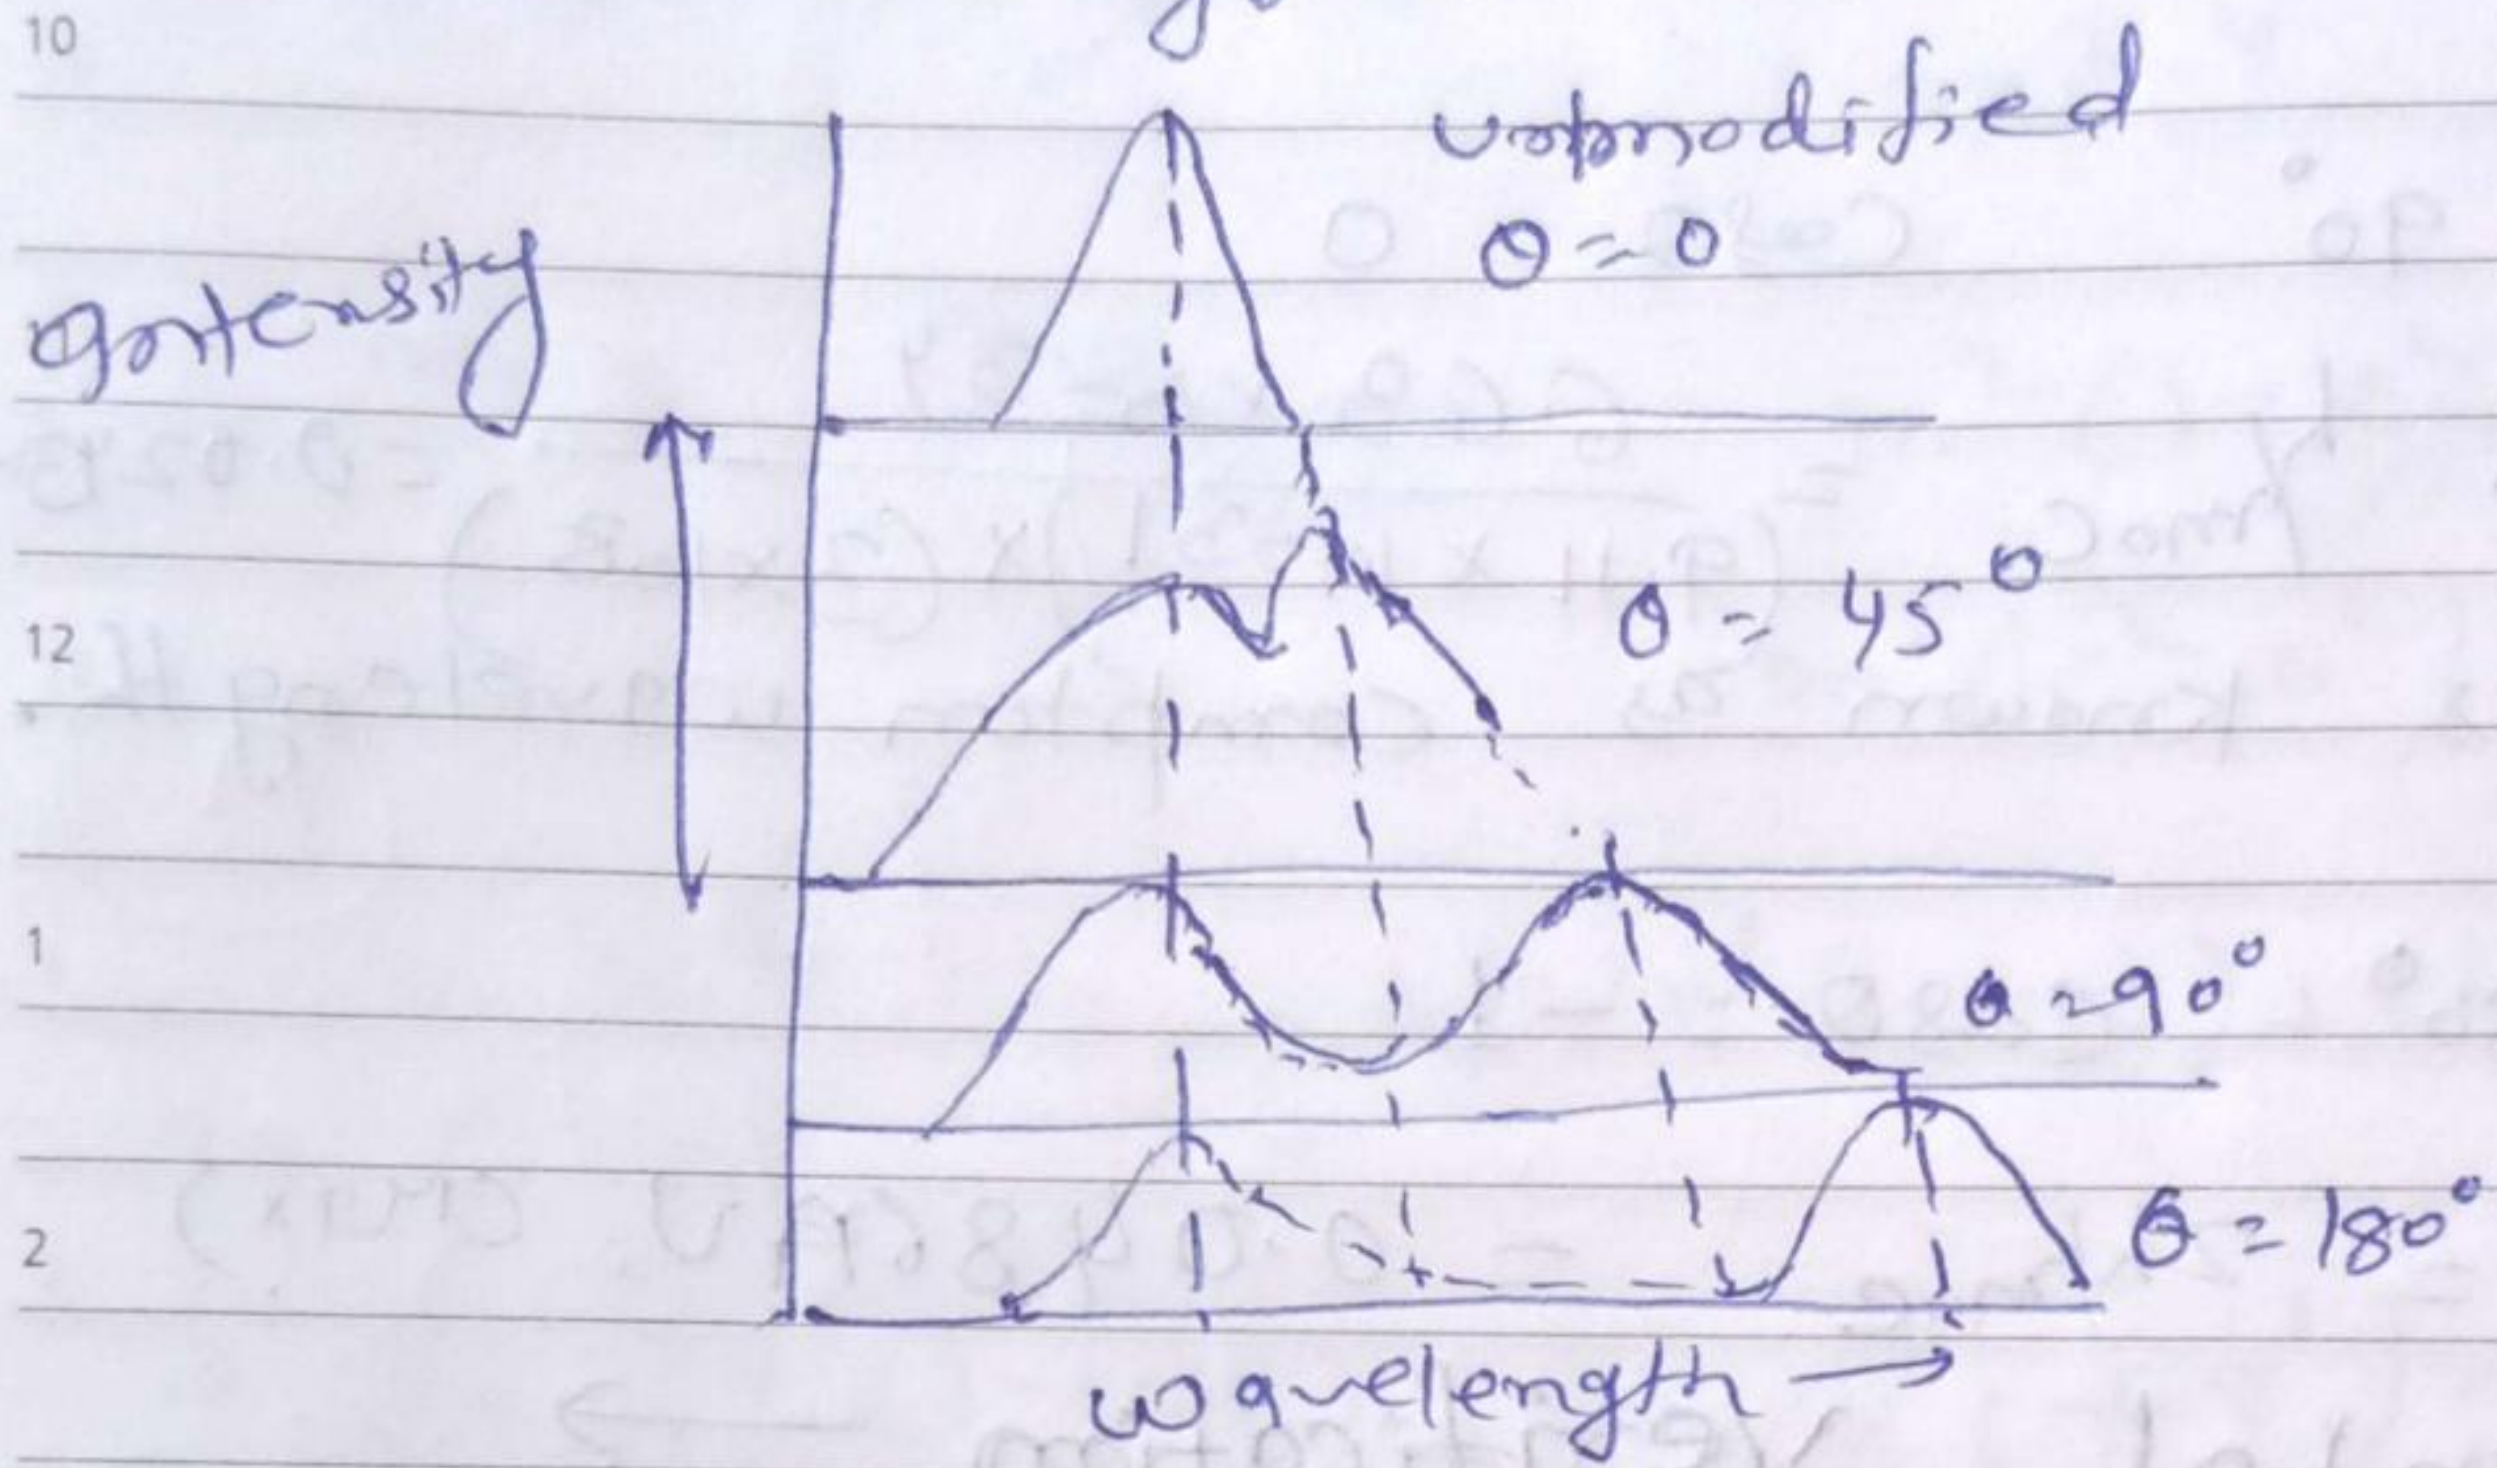 10
unmodified
θ = 0
Intensity
12
θ = 45°
1
θ = 90°
2
θ = 180°
wavelength →